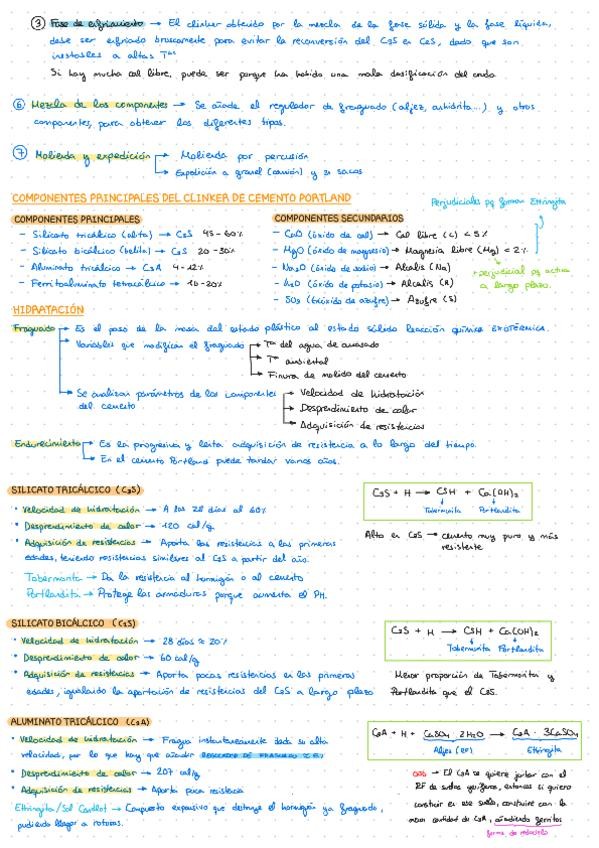 ③ Fase de enfriamiento → El clinker obtenido por la mezcla de la fase sólida y la fase líquida,
debe ser enfriado bruscamente para evitar la reconversión del C3S en C2S, dado que son
inestables a altas Tas
Si hay mucha cal libre, puede ser porque ha habido una mala dosificación del crudo
⑥ Mezcla de los componentes → Se añade el regulador de fraguado (aljez, anhidrita...) y otros
componentes, para obtener los diferentes tipos.
⑦ Molienda y expedición → Molienda por percusión
→ Expedición a granel (camión) y en sacos
COMPONENTES PRINCIPALES DEL CLINKER DE CEMENTO PORTLAND
Perjudiciales pq forman Ettringita
COMPONENTES PRINCIPALES
- Silicato tricálcico (alita) → C3S 45-60%
- Silicato bicálcico (belita) → C2S 20-30%
- Aluminato tricálcico → C3A 4-12%
- Ferritoaluminato tetracálcico → 10-20%
COMPONENTES SECUNDARIOS
- CaO (óxido de cal) → Cal libre (L) < 5%
- MgO (óxido de magnesio) → Magnesia libre (Mg) < 2%
- Na2O (óxido de sodio) → Alcalis (Na)
- K2O (óxido de potasio) → Alcalis (K)
- SO3 (trióxido de azufre) → Azufre (S)
+ perjudicial pq actua
a largo plazo.
HIDRATACIÓN
Fraguado → Es el paso de la masa del estado plástico al estado sólido reacción química EXOTÉRMICA.
→ Variables que modifican el fraguado → Ta del agua de amasado
→ Ta ambiental
→ Finura de molido del cemento
→ Se analizan parámetros de los componentes → Velocidad de hidratación
del cemento → Desprendimiento de calor
→ Adquisición de resistencias
Endurecimiento → Es la progresiva y lenta adquisición de resistencia a lo largo del tiempo.
→ En el cemento Portland puede tardar varios años.
SILICATO TRICÁLCICO (C3S)
• Velocidad de hidratación → A los 28 días al 60%
• Desprendimiento de calor → 120 cal/g
• Adquisición de resistencias → Aporta las resistencias a las primeras
edades, teniendo resistencias similares al C2S a partir del año.
Tobermorita → Da la resistencia al hormigón o al cemento
Portlandita → Protege las armaduras porque aumenta el PH.
C3S + H → CSH + Ca(OH)2
Tobermorita Portlandita
Alta en C3S → cemento muy puro y más
resistente
SILICATO BICÁLCICO (C2S)
• Velocidad de hidratación → 28 días ≈ 20%
• Desprendimiento de calor → 60 cal/g
• Adquisición de resistencias → Aporta pocas resistencias en las primeras
edades, igualando la aportación de resistencias del C3S a largo plazo
C2S + H → CSH + Ca(OH)2
Tobermorita Portlandita
Menor proporción de Tobermorita y
Portlandita que el C3S.
ALUMINATO TRICÁLCICO (C3A)
• Velocidad de hidratación → Fragua instantaneamente dada su alta
velocidad, por lo que hay que añadir REGULADOR DE FRAGUADO
• Desprendimiento de calor → 207 cal/g
• Adquisición de resistencias → Aporta poca resistencia
Ettringita/Sal Candlot → Compuesto expansivo que destruye el hormigón ya fraguado,
pudiendo llegar a roturas.
C3A + H + CaSO4 · 2H2O → C3A · 3CaSO4
Aljez (RF) Ettringita
→ El C3A se quiere juntar con el
RF de suelos yesíferos, entonces si quiero
construir en ese suelo, construire con la
menor cantidad de C3A, añadiendo ferritos
forma de reducirlo